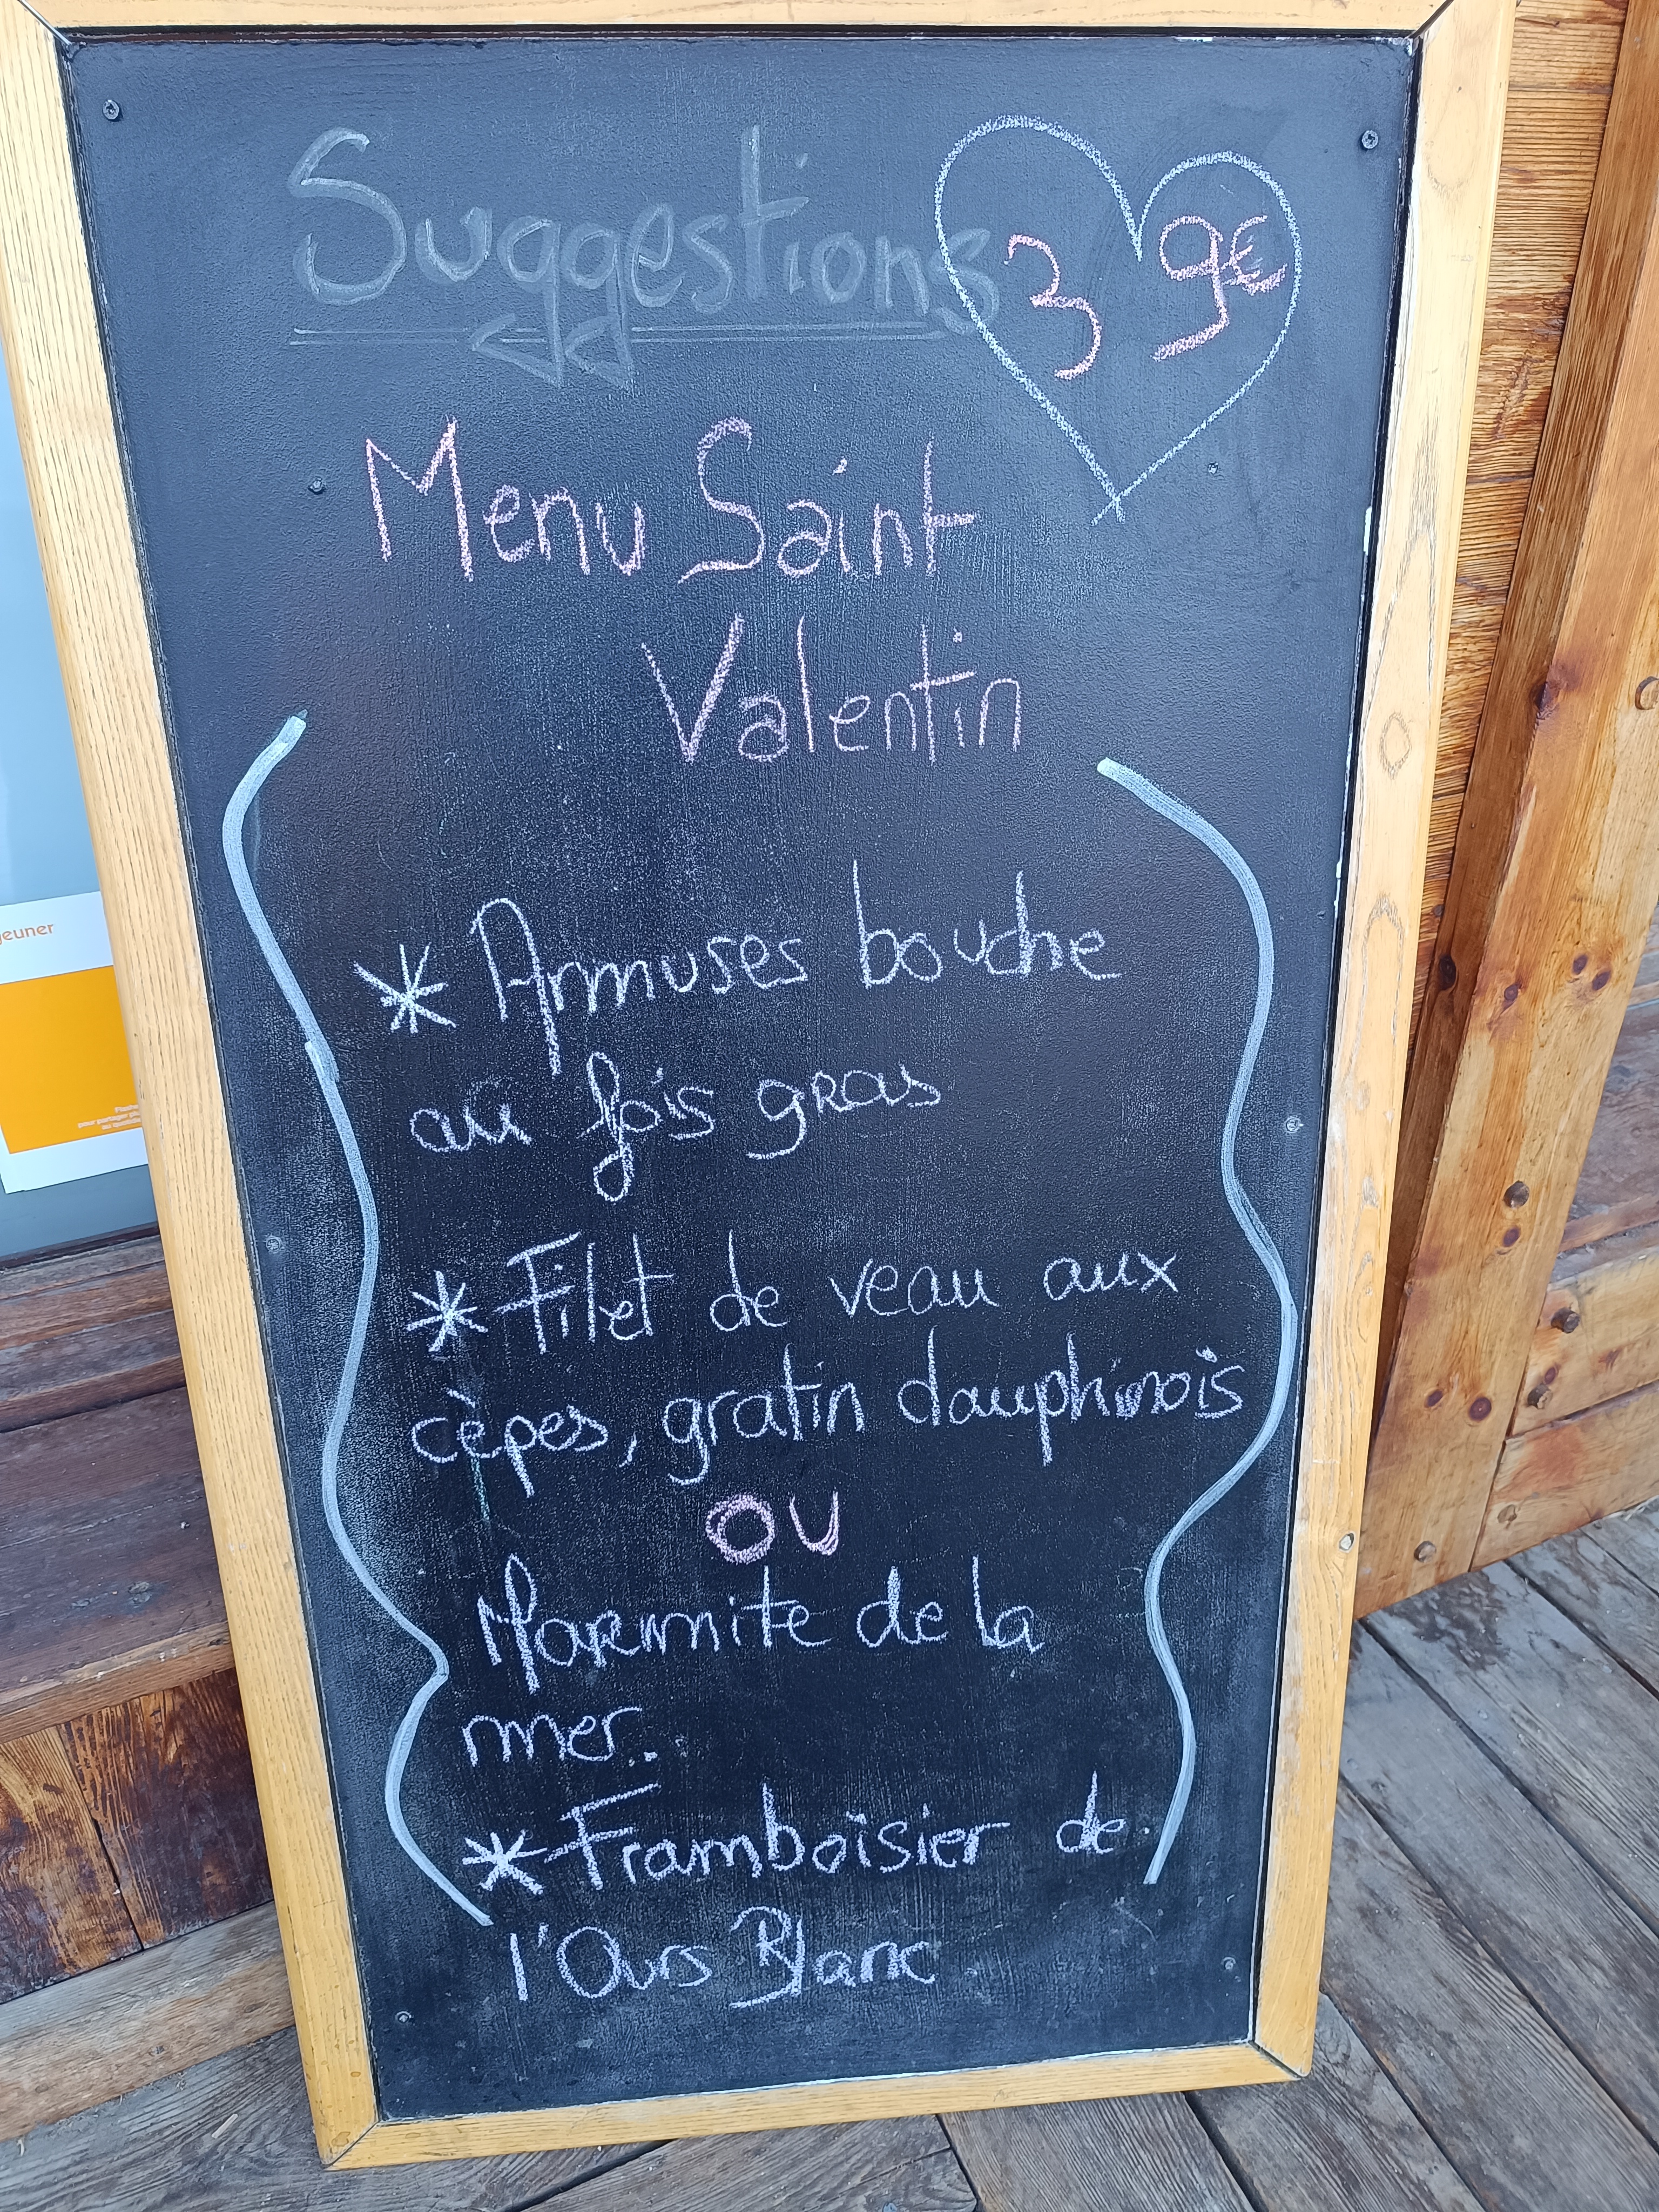 Suggestions
39€
Menu Saint
Valentin
* Armuses bouche
au fois gras
* Filet de veau aux
cèpes, gratin dauphinois
OU
Marmite de la
mer.
* Framboisier de
l'Ours Blanc
jeuner
pour partager
au quotidien